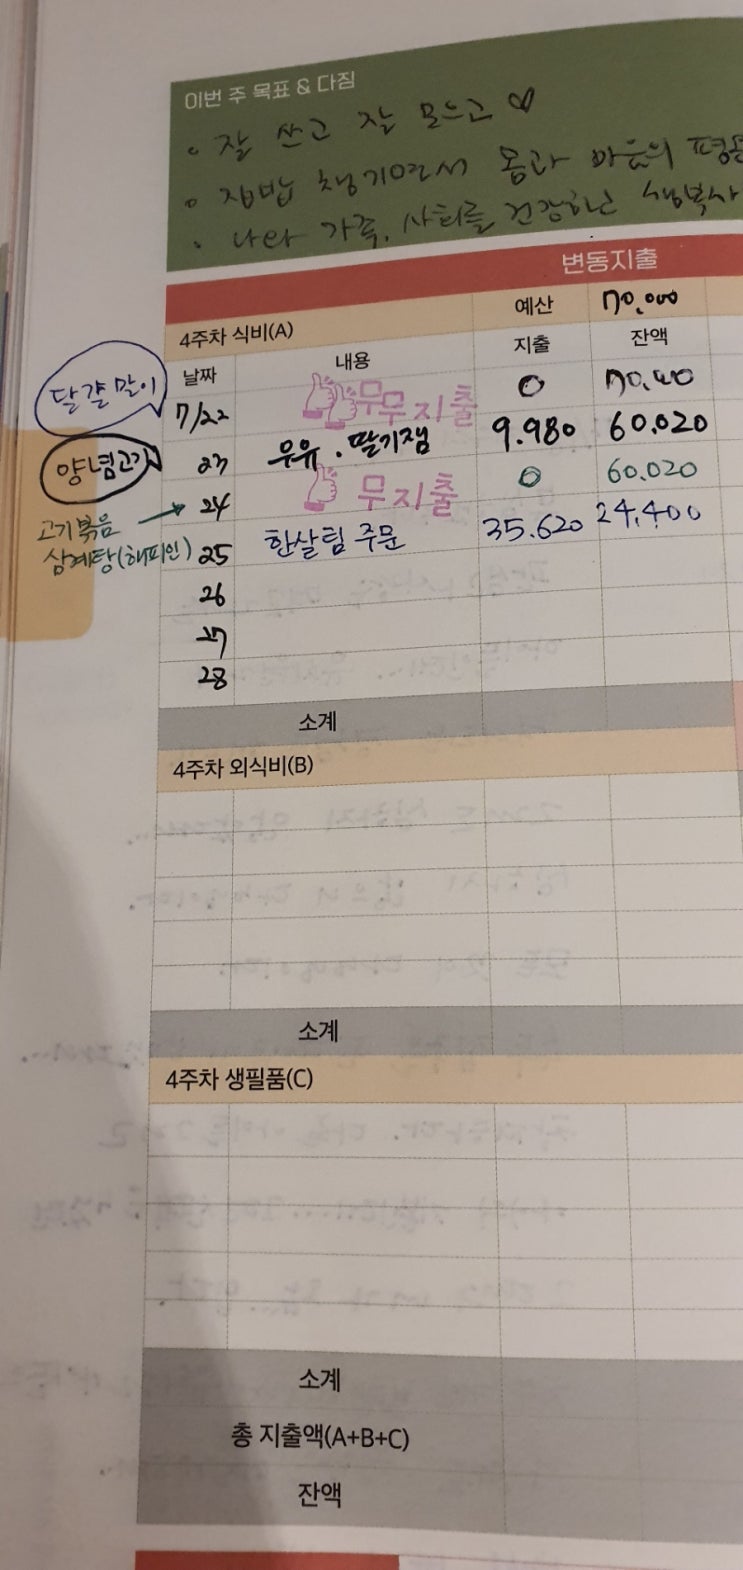 이번 주 목표 & 다짐
• 잘 쓰고 잘 모으고 ♡
• 집밥 챙기면서 몸과 마음의
• 나와 가족, 사회를 건강하는
변동지출
4주차 식비(A) 예산 70.000
날짜 내용 지출 잔액
달걀말이 7/22 무무지출 0 70.000
양념고기 23 우유 · 딸기잼 9.980 60.020
24 무지출 0 60.020
고기볶음
삼계탕(해피인) 25 한살림 주문 35.620 24.400
26
27
28
소계
4주차 외식비(B)
소계
4주차 생필품(C)
소계
총 지출액(A+B+C)
잔액